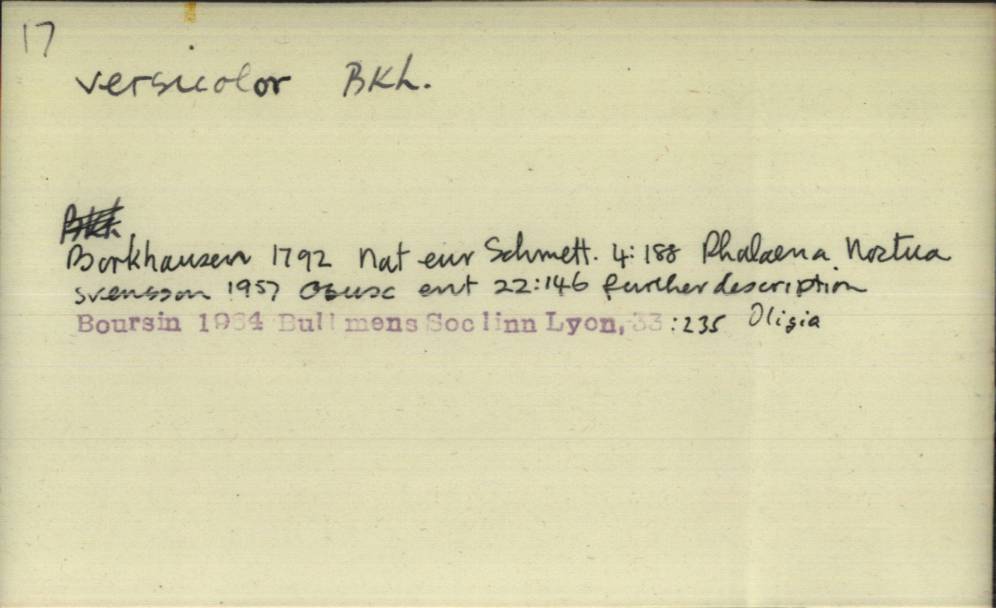 17
versicolor Bkh.
Borkhausen 1792 Nat eur Schmett. 4:188 Phalaena Noctua
Svensson 1957 Opusc ent 22:146 further description
Boursin 1964 Bull mens Soc linn Lyon, 33 :235 Oligia